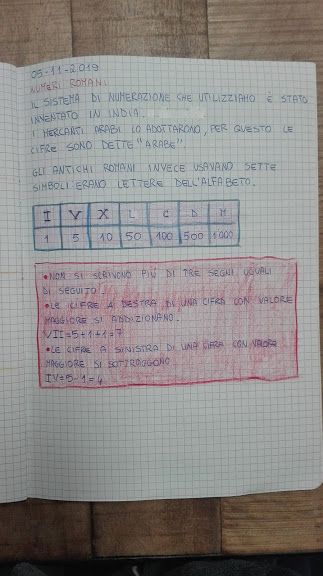 05-11-2019
NUMERI ROMANI
IL SISTEMA DI NUMERAZIONE CHE UTILIZZIAMO È STATO
INVENTATO IN INDIA.
I MERCANTI ARABI LO ADOTTARONO, PER QUESTO LE
CIFRE SONO DETTE "ARABE".
GLI ANTICHI ROMANI INVECE USAVANO SETTE
SIMBOLI ERANO LETTERE DELL'ALFABETO.
I V X L C D M
1 5 10 50 100 500 1000
• NON SI SCRIVONO PIÙ DI TRE SEGNI UGUALI
DI SEGUITO
• LE CIFRE A DESTRA DI UNA CIFRA CON VALORE
MAGGIORE SI ADDIZIONANO.
VII=5+1+1=7
• LE CIFRE A SINISTRA DI UNA CIFRA CON VALORE
MAGGIORE SI SOTTRAGGONO
IV=5-1=4